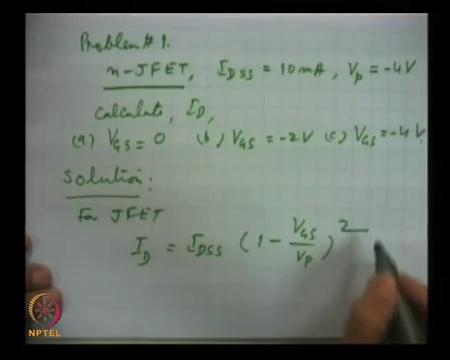 Problem # 1.
n-JFET, I_DSS = 10mA, V_p = -4V
Calculate, I_D,
(a) V_GS = 0 (b) V_GS = -2V (c) V_GS = -4V.
Solution:
For JFET
I_D = I_DSS (1 - V_GS/V_p)^2
NPTEL